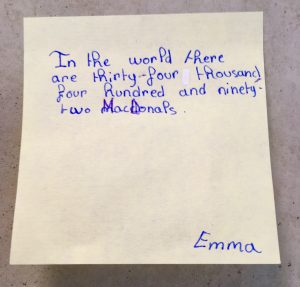 In the world there
are thirty-four thousand
four hundred and ninety-
two MacDonals.
Emma